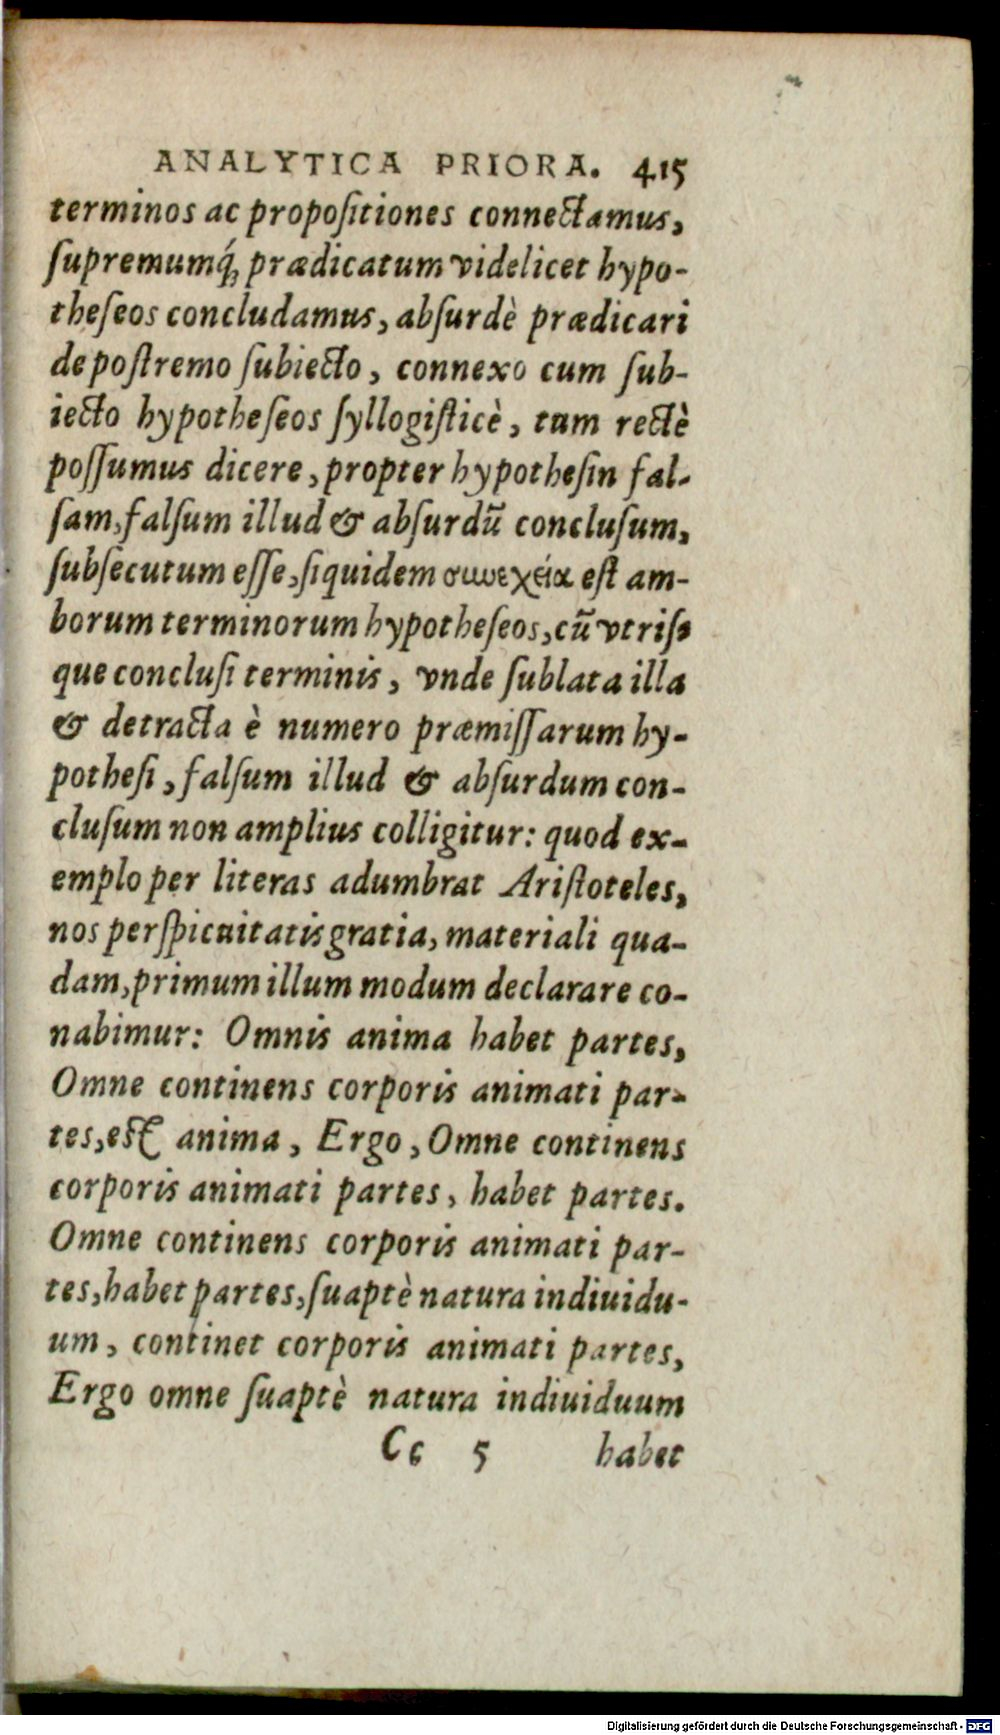 ANALYTICA PRIORA. 415
terminos ac propoſitiones connectamus,
ſupremumq́; prædicatum videlicet hypo-
theſeos concludamus, abſurdè prædicari
de poſtremo ſubiecto, connexo cum ſub-
iecto hypotheſeos ſyllogiſticè, tum rectè
poſſumus dicere, propter hypotheſin fal-
ſam, falſum illud & abſurdũ concluſum,
ſubſecutum eſſe, ſiquidem συνεχεία eſt am-
borum terminorum hypotheſeos, cũ vtriſ-
que concluſi terminis, vnde ſublata illa
& detracta è numero præmiſſarum hy-
potheſi, falſum illud & abſurdum con-
cluſum non amplius colligitur: quod ex-
emplo per literas adumbrat Ariſtoteles,
nos perſpicuitatis gratia, materiali qua-
dam, primum illum modum declarare co-
nabimur: Omnis anima habet partes,
Omne continens corporis animati par-
tes, eſt anima, Ergo, Omne continens
corporis animati partes, habet partes.
Omne continens corporis animati par-
tes, habet partes, ſuaptè natura indiuidu-
um, continet corporis animati partes,
Ergo omne ſuaptè natura indiuiduum
Cc 5 habet
Digitalisierung gefördert durch die Deutsche Forschungsgemeinschaft - DFG